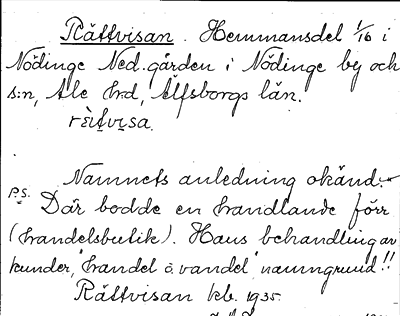 Rättvisan. Hemmansdel 1/16 i
Nödinge Ned.gården i Nödinge by och
s:n, Ale hrd, Älfsborgs län.
rèit̬vi̬sa.
Namnets anledning okänd.
P.S. Där bodde en handlande förr
(handelsbutik). Hans behandling av
kunder, "handel o vandel" namngrund!!
Rättvisan kb. 1935.